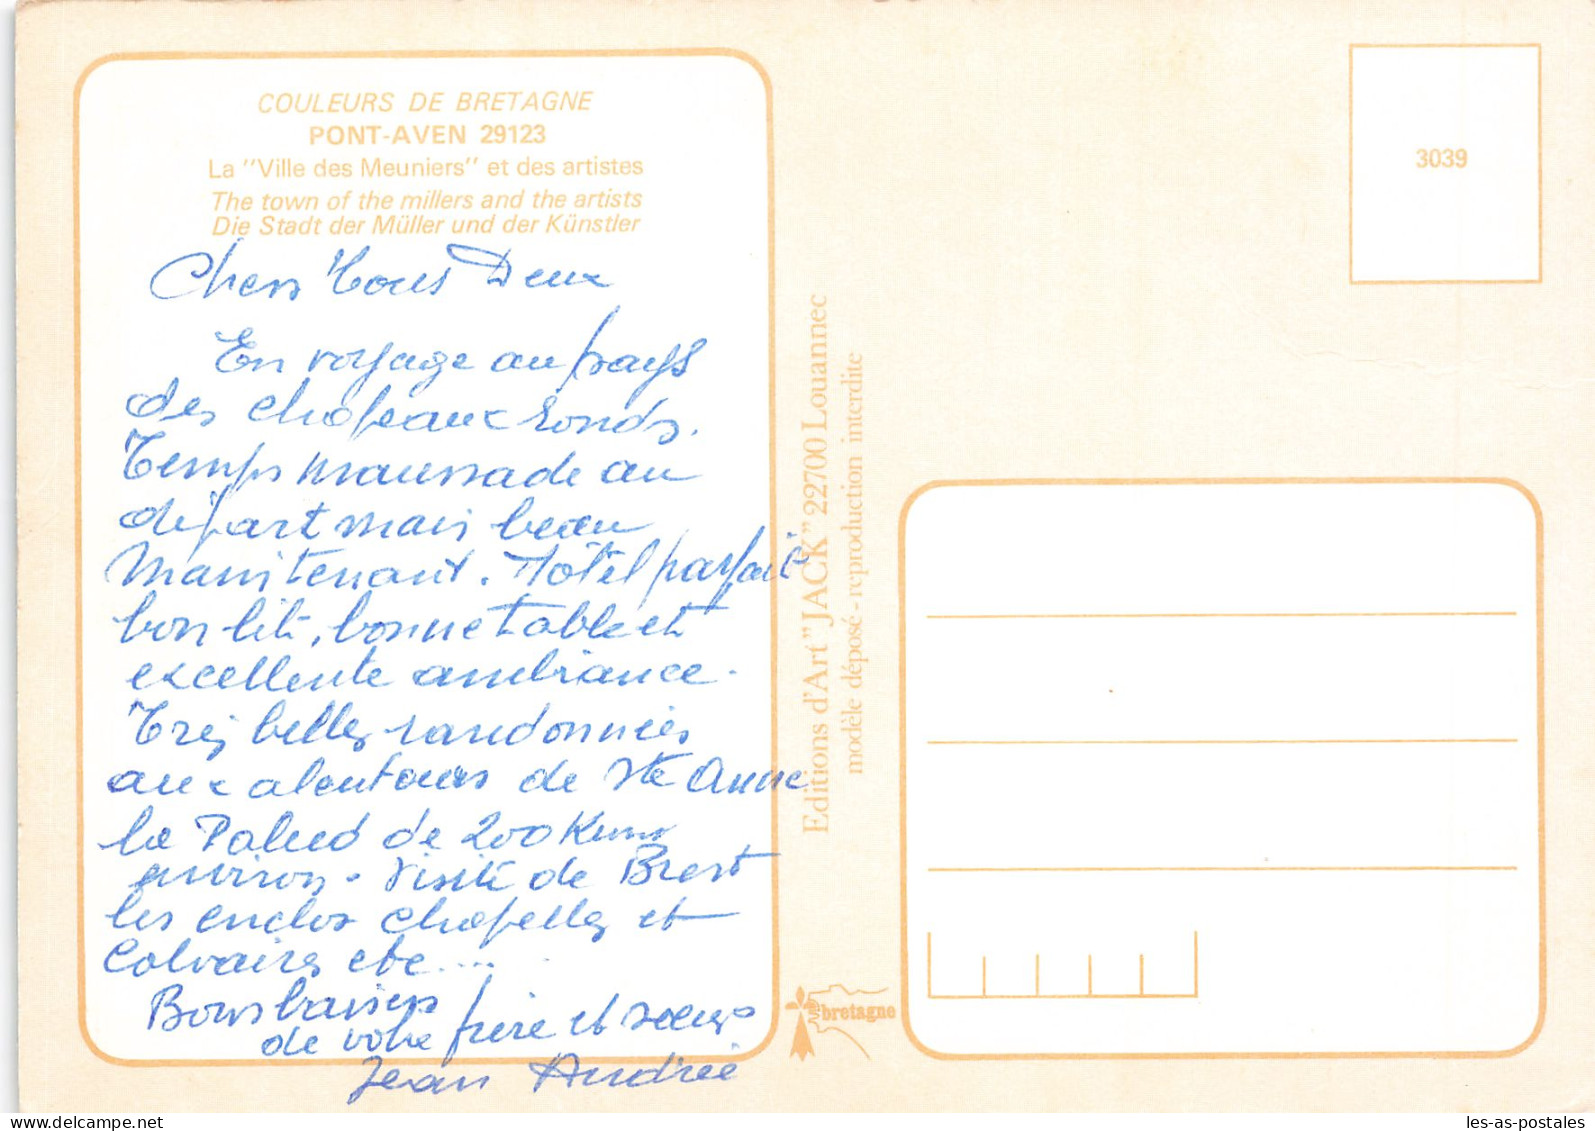 COULEURS DE BRETAGNE
PONT-AVEN 29123
La "Ville des Meuniers" et des artistes
The town of the millers and the artists
Die Stadt der Müller und der Künstler
Chers Tous Deux
En voyage au pays
des chapeaux ronds.
Temps maussade au
départ mais beau
Maintenant. Hôtel parfait
bon lit, bonne table et
excellente ambiance.
Très belles randonnées
aux alentours de Ste Anne
la Palud de 200 Kms
environ - Visite de Brest
les enclos chapelles et
Calvaires etc....
Bons baisers
de votre frère et soeur
Jean Andrée
Editions d'Art "JACK" 22700 Louannec
modèle déposé - reproduction interdite
3039
bretagne
les-as-postales
delcampe.net